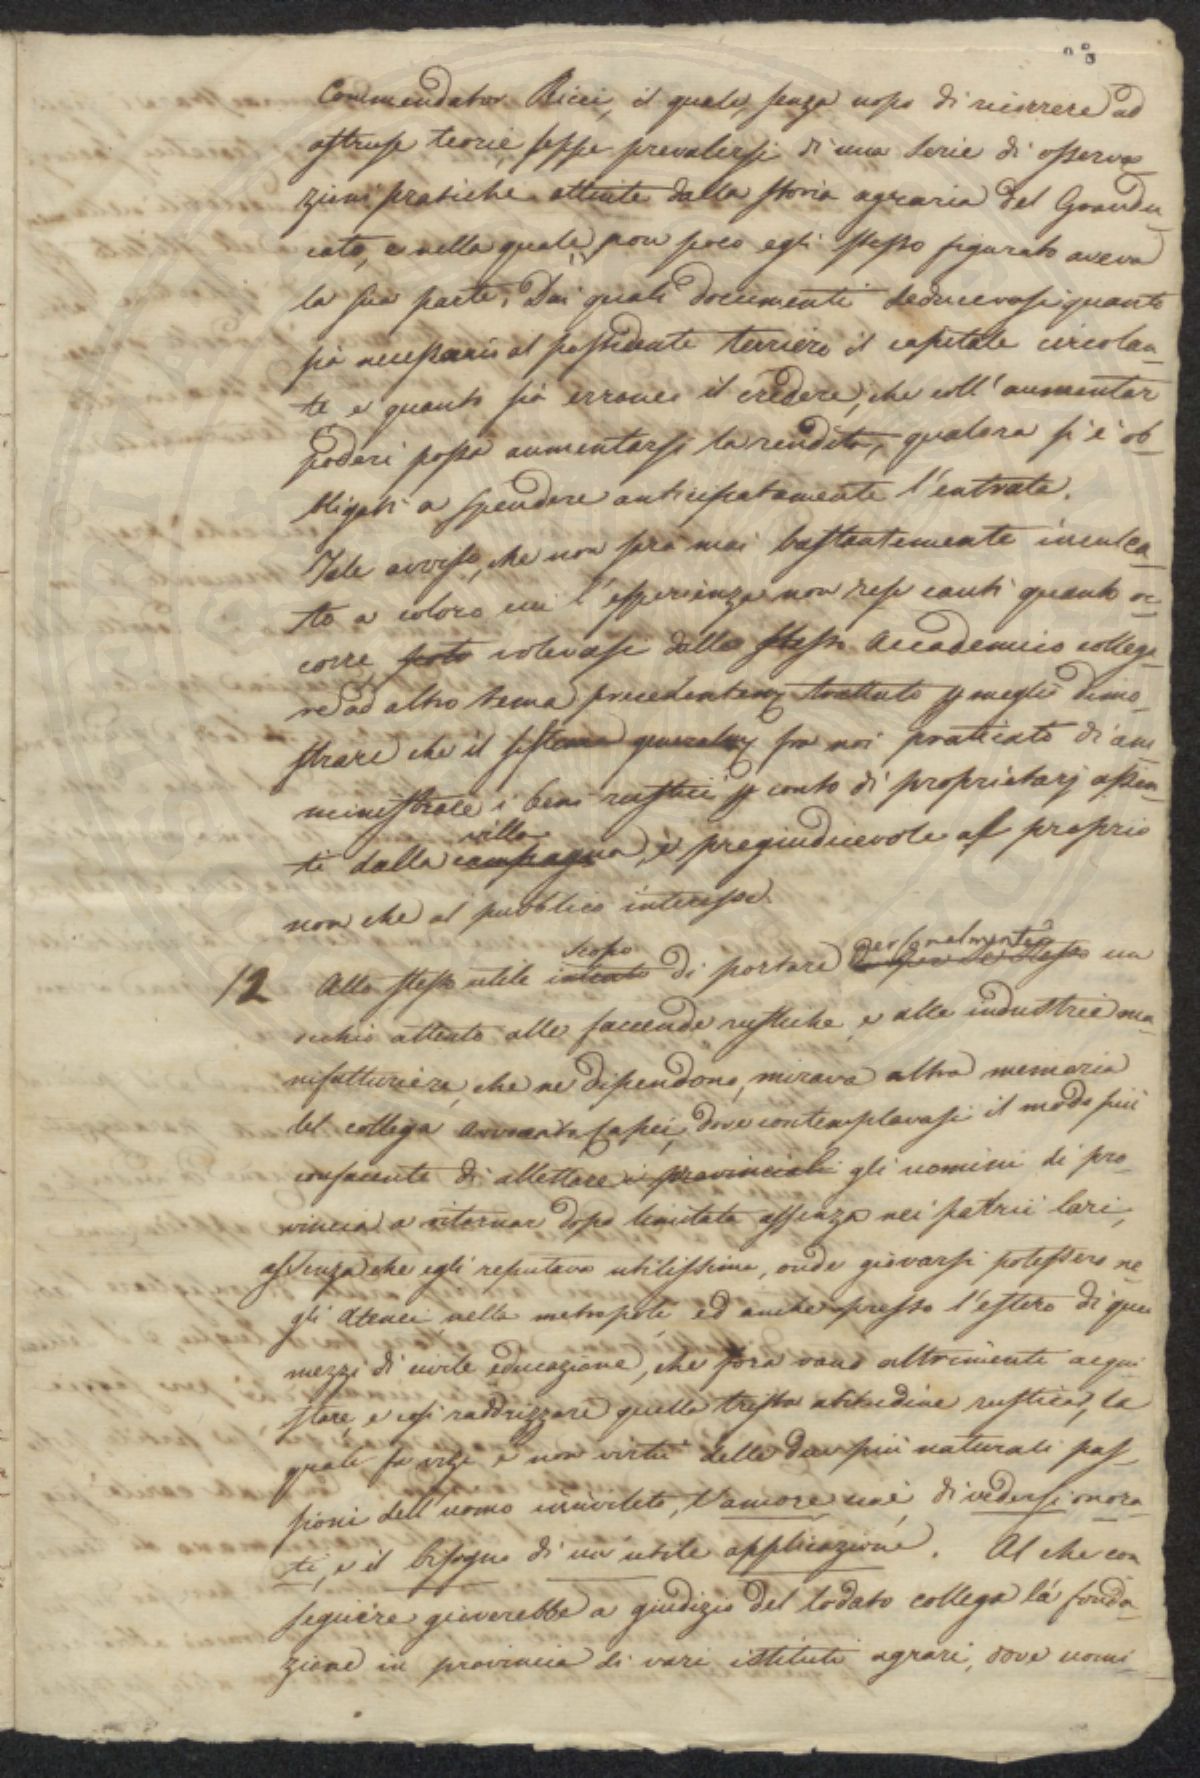 Commendator Ricci, il quale, senza uopo di ricorrere ad
astruse teorie, seppe prevalersi di una serie di osserva=
zioni pratiche attinte dalla storia agraria del Grandu=
cato, e nella quale, non poco egli stesso figurato aveva
la sua parte. Dai quali documenti deducevasi quanto
sia necessario al possidente terriero il capitale circolan=
te e quanto sia erroneo il credere, che coll'aumentar
poderi possa aumentarsi la rendita, qualora si è ob=
bligati a spendere anticipatamente l'entrata.
Tale avviso, che non sarà mai bastantemente inculca=
to a coloro cui l'esperienza non rese cauti quanto oc=
corre, volevasi dallo stesso Accademico collega=
re ad altro tema precedentem. trattato p meglio dimo=
strare che il sistema generalm. fra noi praticato di am
ministrare i beni rustici p conto di proprietarj assen=
villa
ti dalla campagna, è pregiudicevole al proprio
non che al pubblico interesse.
scopo personalmente
12 Allo stesso utile intento di portare da per se stesso un
occhio attento alle faccende rustiche, e alle industrie ma=
nifatturiere, che ne dipendono, mirava altra memoria
del collega Avvocato Capei, dove contemplavasi il modo più
confacente di allettare i provinciali gli uomini di pro=
vincia a ritornar dopo limitata assenza nei patrii lari,
assenza che egli reputava utilissima, onde giovarsi potessero ne=
gli Atenei nella metropoli, ed anche presso l'estero di quei
mezzi di civile educazione, che fora vano altrimenti acqui=
stare, e così raddrizzare quella trista abitudine rustica, la
quale fa vizi e non virtù delle due più naturali pas=
sioni dell'uomo incivilito, l'amore cioè, di vedersi onora=
ti, e il bisogno di un'utile applicazione. Al che con
seguire gioverebbe a giudizio del lodato collega la fonda=
zione in provincia di vari istituti agrari, dove uomi=